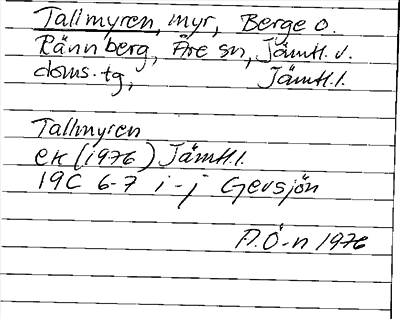 Tallmyren, myr, Berge o.
Rännberg, Åre sn, Jämtl. v.
doms. tg, Jämtl. l.
Tallmyren
ek (1976) Jämtl. l.
19C 6-7 i-j Gevsjön
A.Ö-n 1976